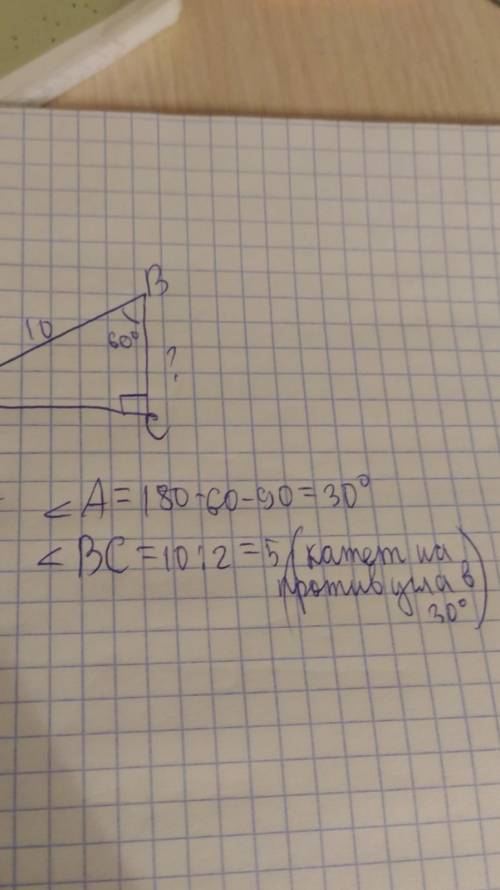 B
10
60°
?
C
∠A = 180-60-90 = 30°
∠BC = 10:2 = 5 (катет на
против угла в
30°)